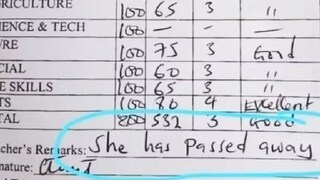 RICULTURE 100 65 3 "
IENCE & TECH 100 — — —
RE 100 75 3 Good
CIAL 100 60 3 "
E SKILLS 100 65 3 "
TS 100 80 4 Excellent
TAL 800 532 3 Good
cher's Remarks: She has passed away
nature: